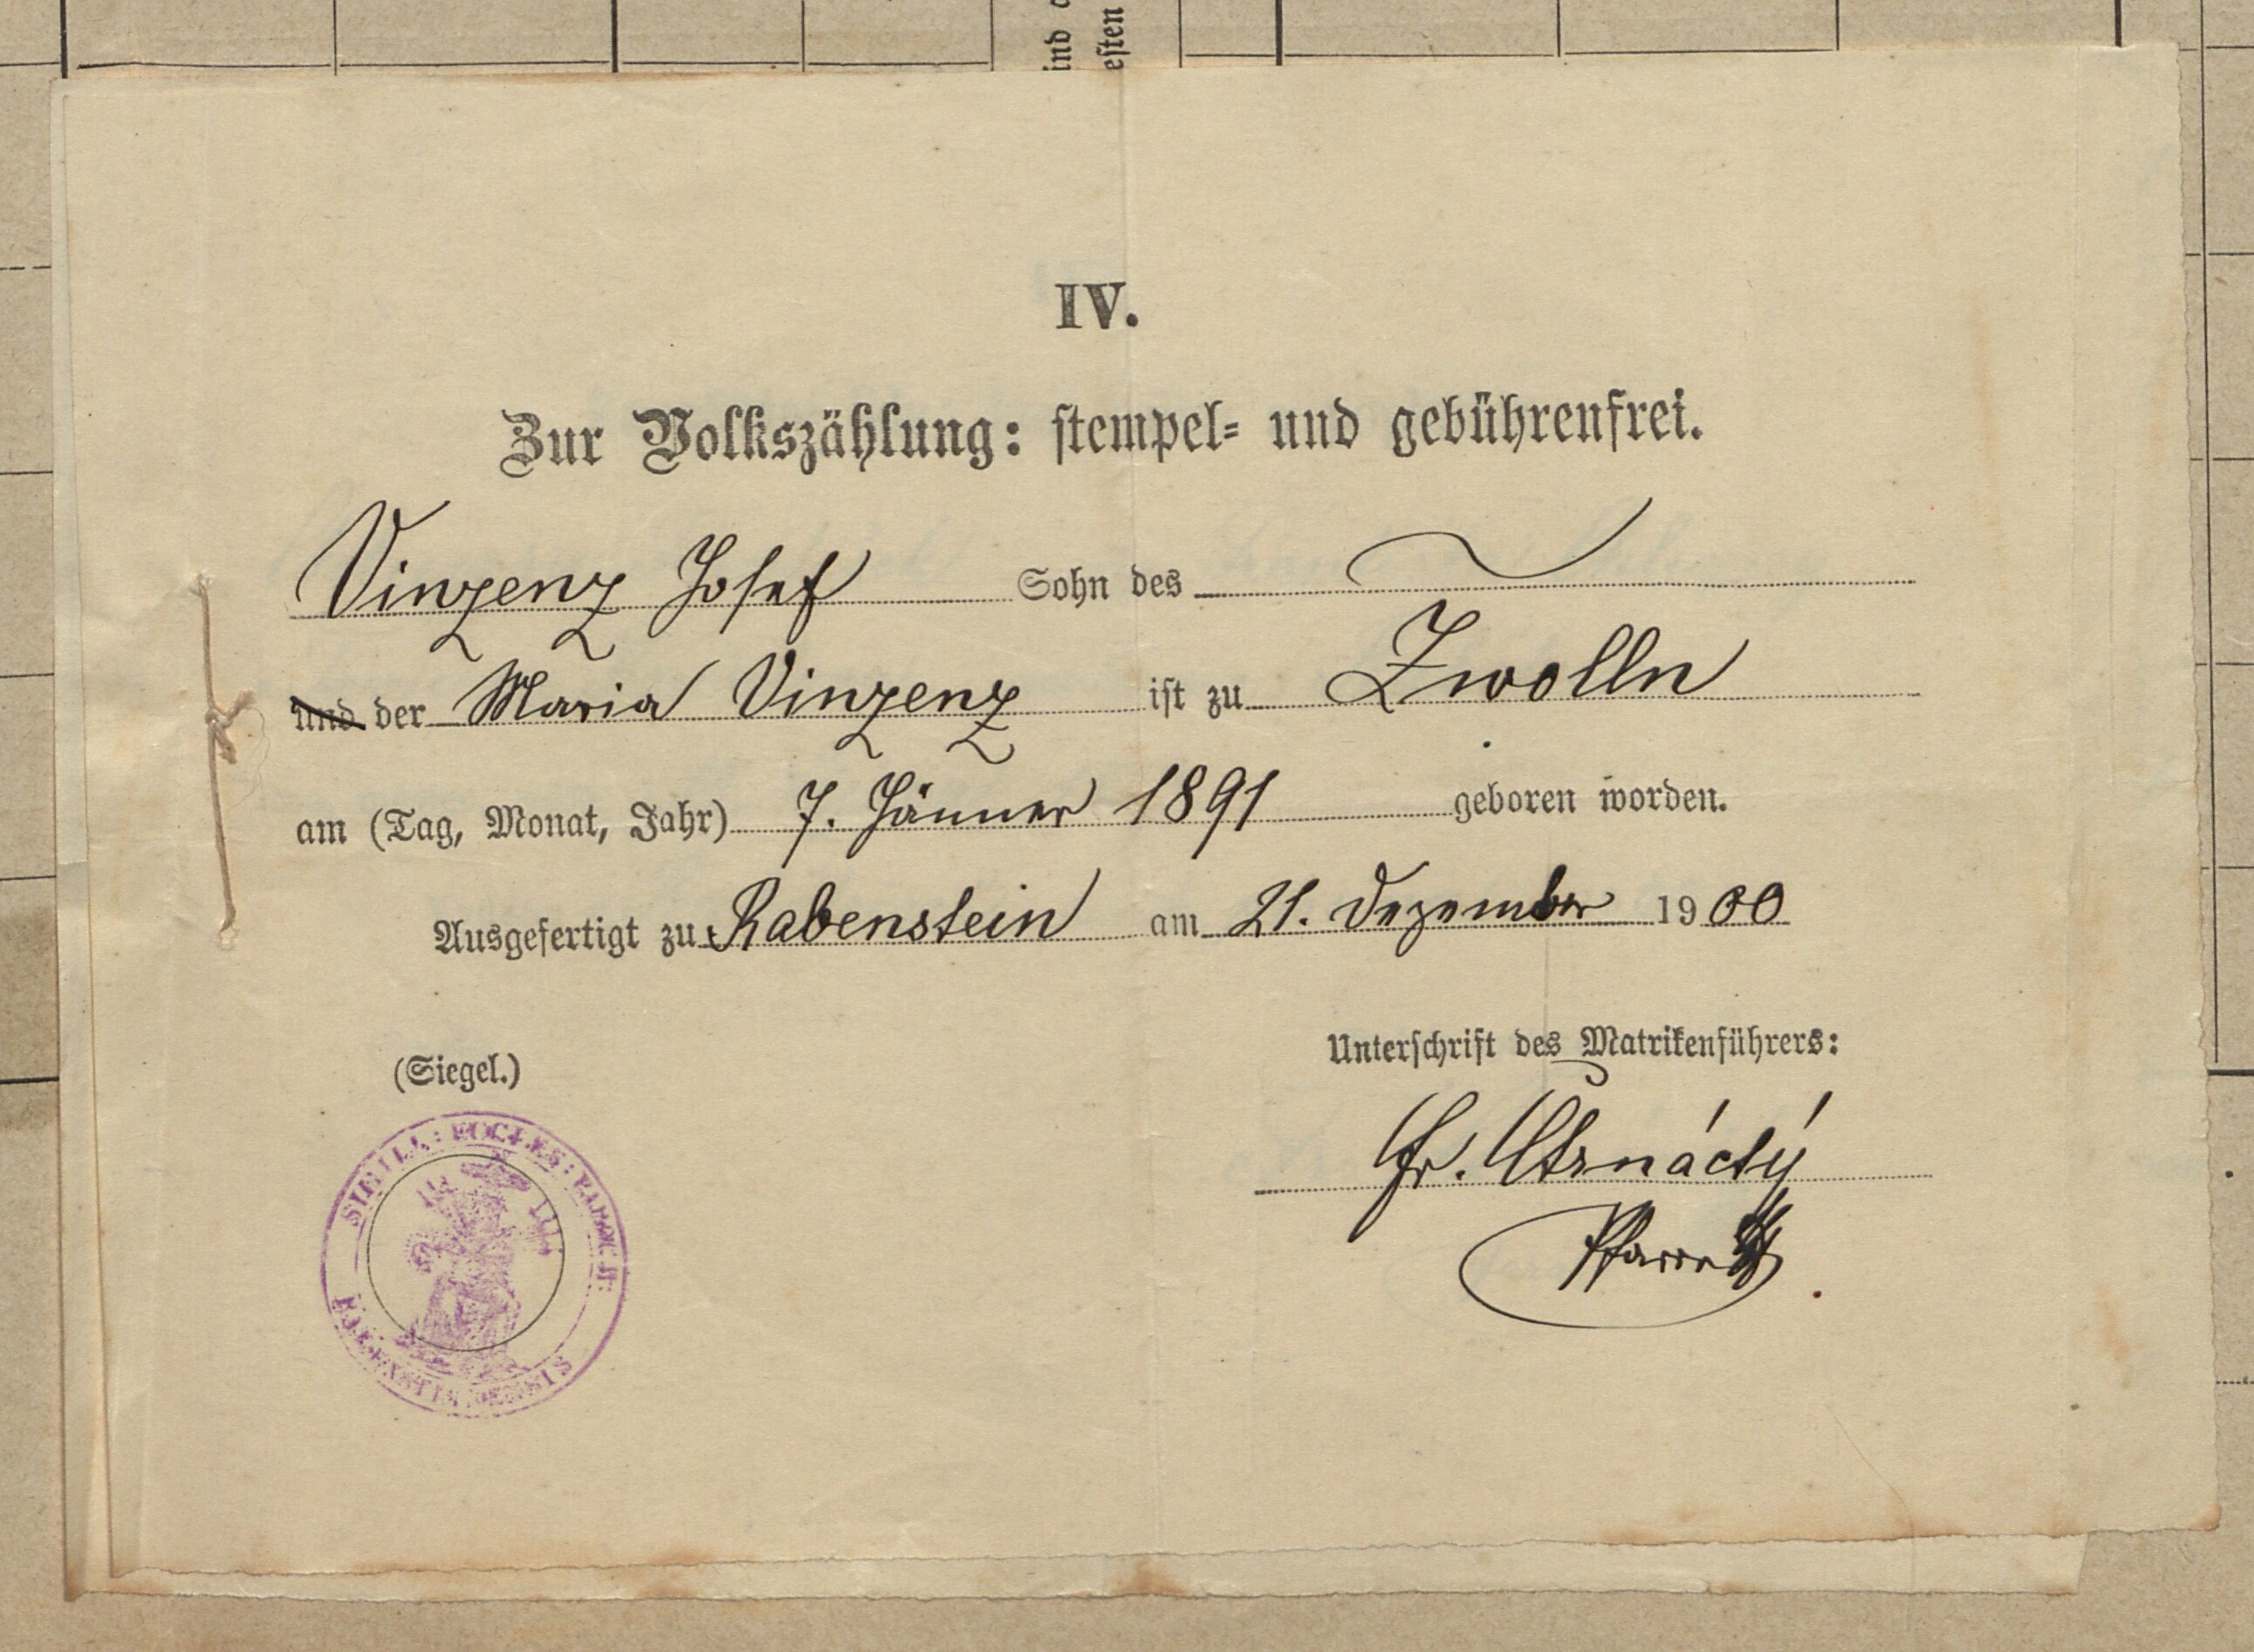 ind
esten
IV.
Zur Volkszählung: stempel= und gebührenfrei.
Vinzenz Josef Sohn des
und der Maria Vinzenz ist zu Zwolln
am (Tag, Monat, Jahr) 7. Jänner 1891 geboren worden.
Ausgefertigt zu Rabenstein am 21. Dezember 1900
Unterschrift des Matrikenführers:
(Siegel.)
Fr. Strnáctý
Pfarrer
SIGILL: ECCLES: